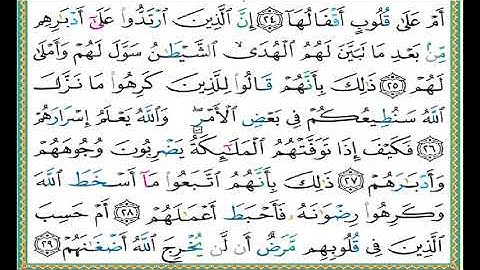 أَمْ عَلَىٰ قُلُوبٍ أَقْفَالُهَآ ﴿٢٤﴾ إِنَّ ٱلَّذِينَ ٱرْتَدُّوا۟ عَلَىٰٓ أَدْبَـٰرِهِم
مِّنۢ بَعْدِ مَا تَبَيَّنَ لَهُمُ ٱلْهُدَى ٱلشَّيْطَـٰنُ سَوَّلَ لَهُمْ وَأَمْلَىٰ
لَهُمْ ﴿٢٥﴾ ذَٰلِكَ بِأَنَّهُمْ قَالُوا۟ لِلَّذِينَ كَرِهُوا۟ مَا نَزَّلَ
ٱللَّهُ سَنُطِيعُكُمْ فِى بَعْضِ ٱلْأَمْرِ ۖ وَٱللَّهُ يَعْلَمُ إِسْرَارَهُمْ
﴿٢٦﴾ فَكَيْفَ إِذَا تَوَفَّتْهُمُ ٱلْمَلَـٰٓئِكَةُ يَضْرِبُونَ وُجُوهَهُمْ
وَأَدْبَـٰرَهُمْ ﴿٢٧﴾ ذَٰلِكَ بِأَنَّهُمُ ٱتَّبَعُوا۟ مَآ أَسْخَطَ ٱللَّهَ
وَكَرِهُوا۟ رِضْوَٰنَهُۥ فَأَحْبَطَ أَعْمَـٰلَهُمْ ﴿٢٨﴾ أَمْ حَسِبَ
ٱلَّذِينَ فِى قُلُوبِهِم مَّرَضٌ أَن لَّن يُخْرِجَ ٱللَّهُ أَضْغَـٰنَهُمْ ﴿٢٩﴾